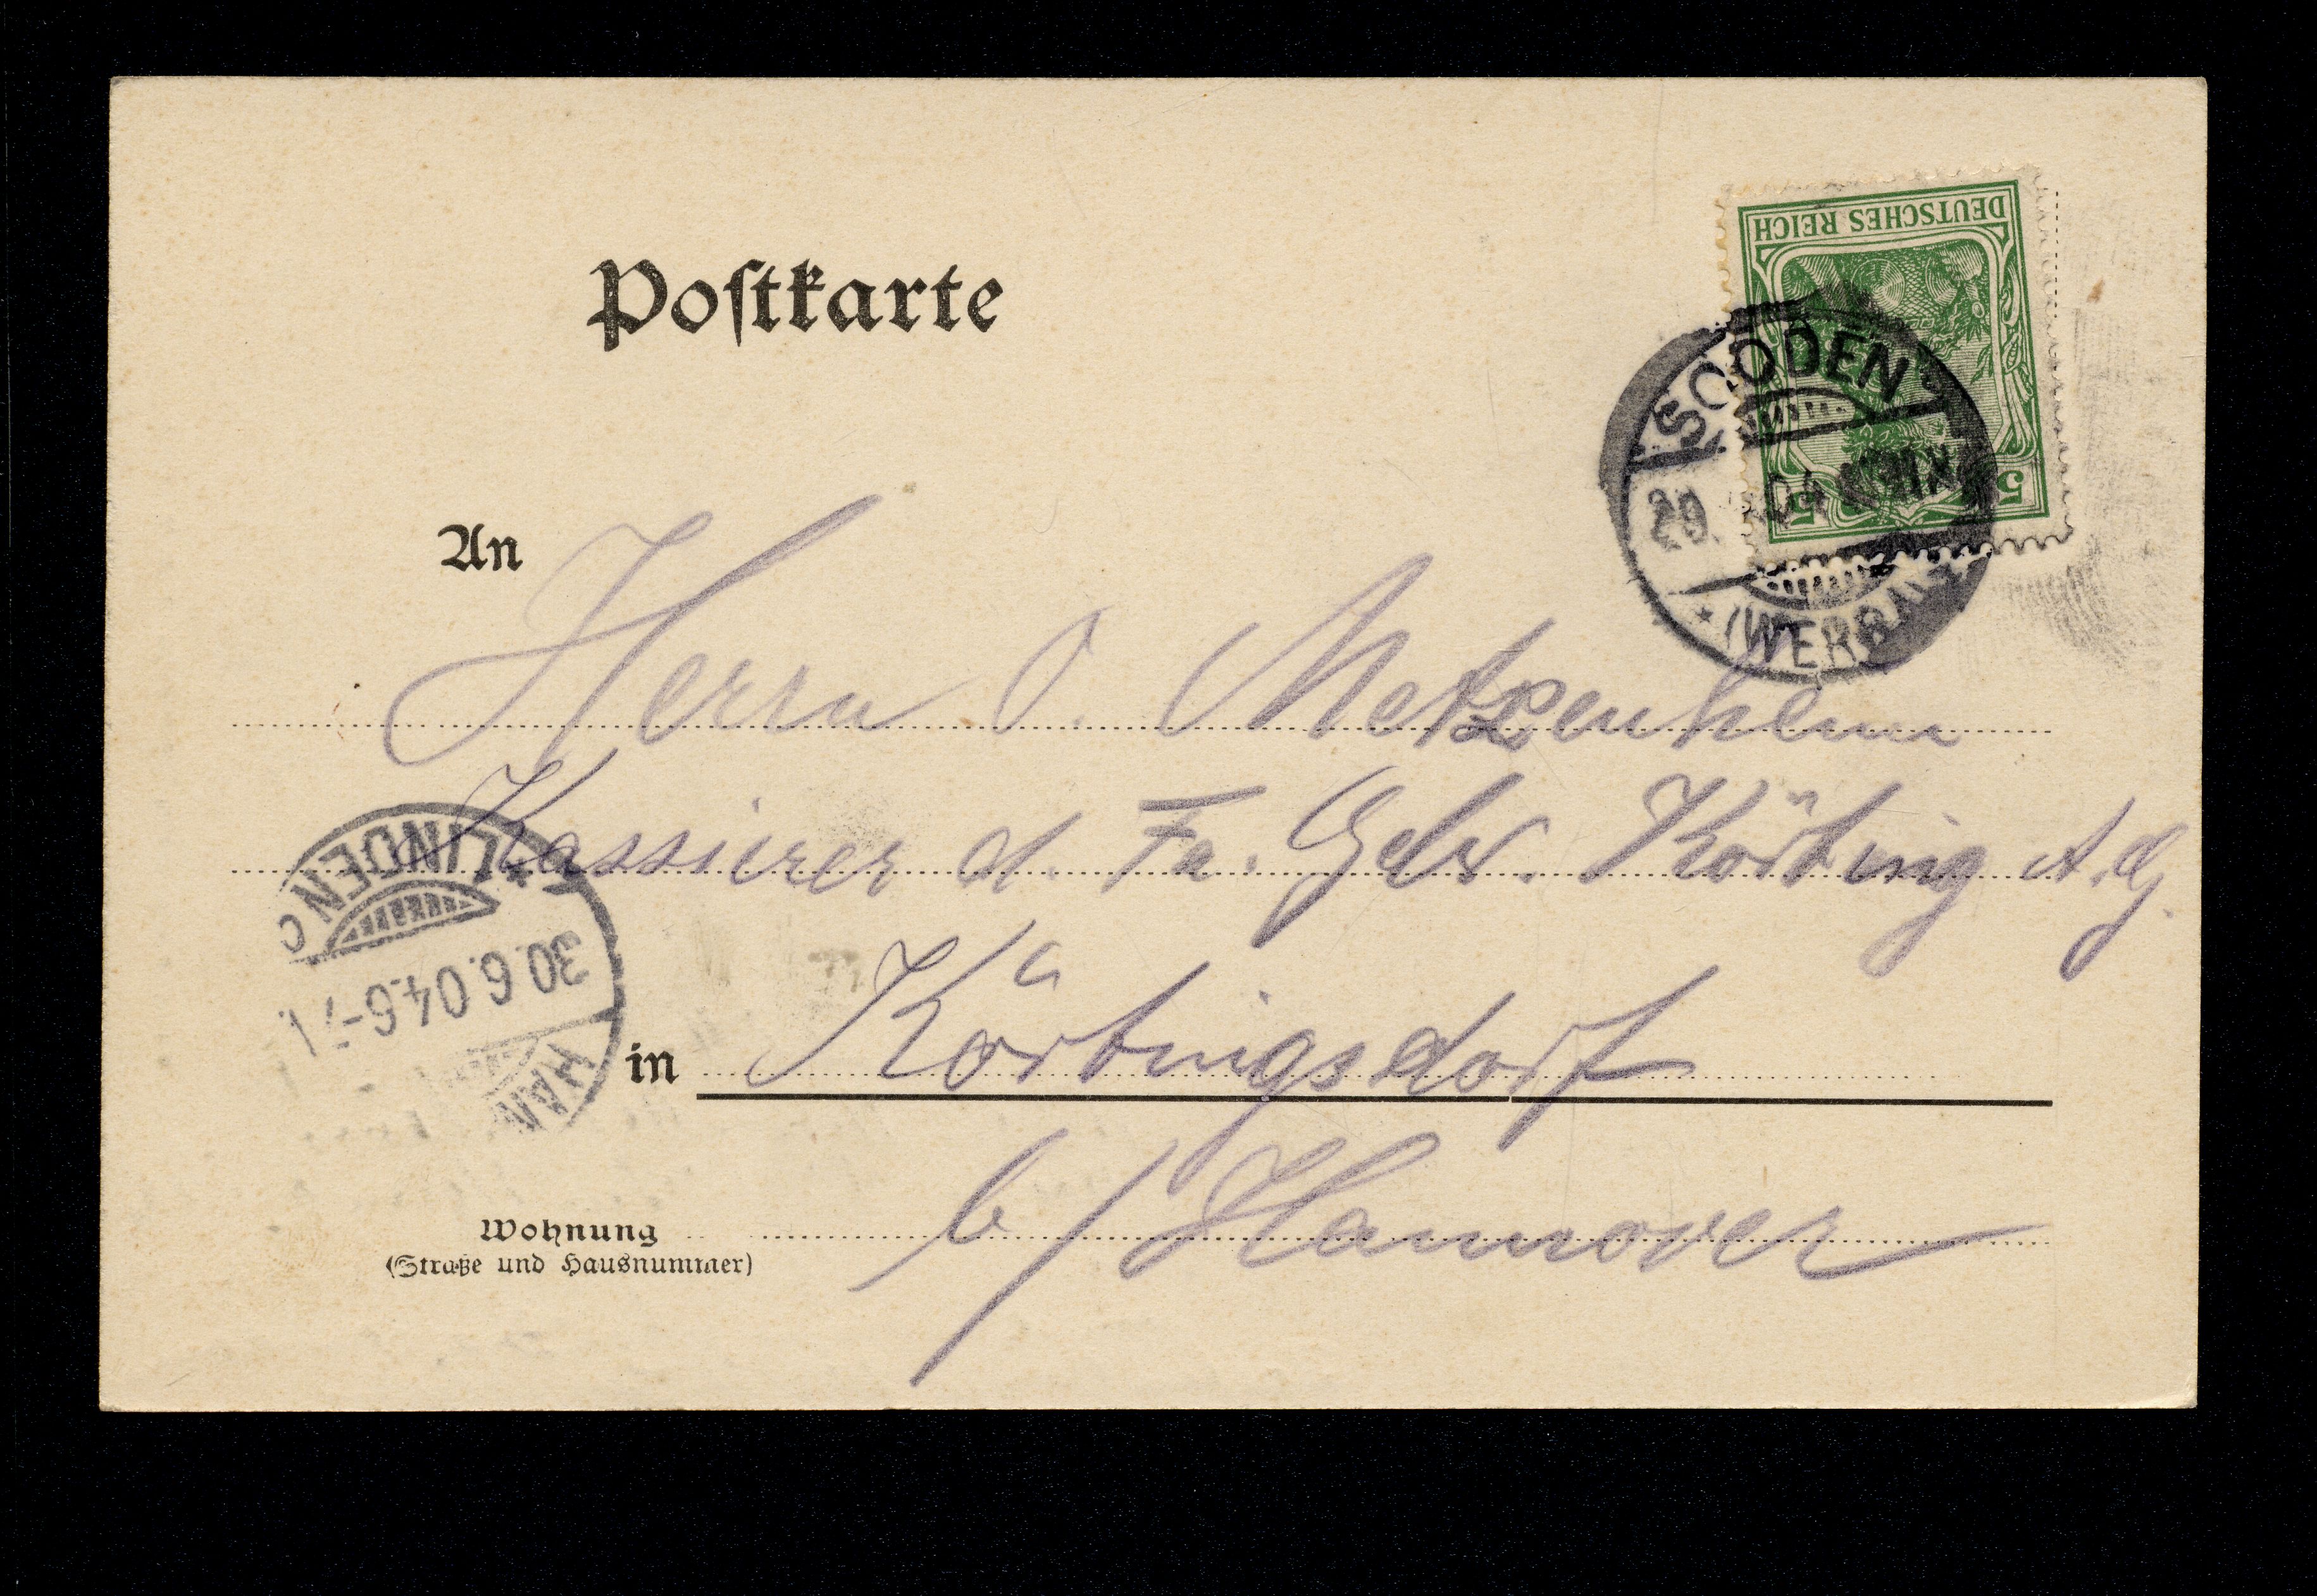 Postkarte
DEUTSCHES REICH
5 5
SOODEN
29. 04
* (WERRA)
An
Herrn O. Metzenheim
Kassierer d. Fa. Gebr. Körting A.G.
LINDEN
30.6.04.6-7
HAN
in Körtingsdorf
b/Hannover
Wohnung
(Straße und Hausnummer)